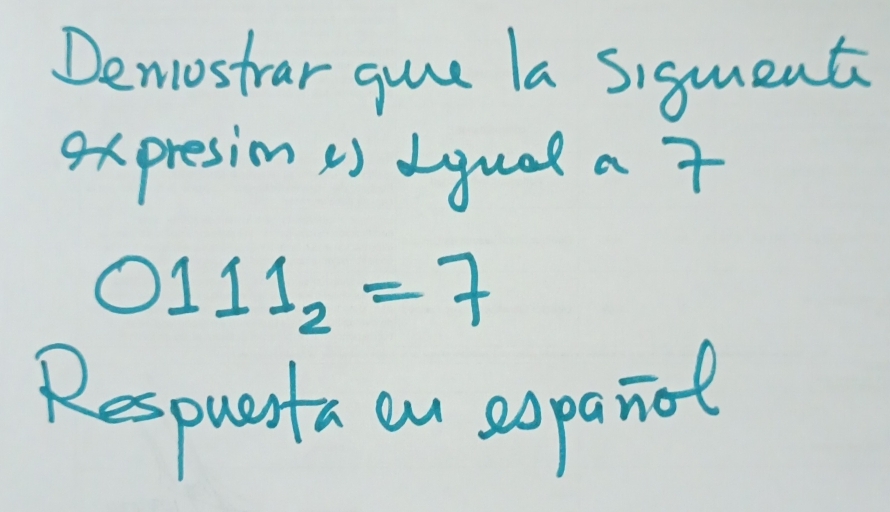 Demostrar que la siguiente
expresion es igual a 7
0111₂ = 7
Respuesta en español